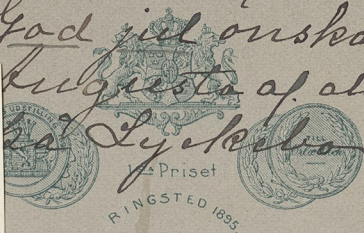 God jul önska
Augusta af al
på Lyckebo
1sta Priset
RINGSTED 1895
TILL